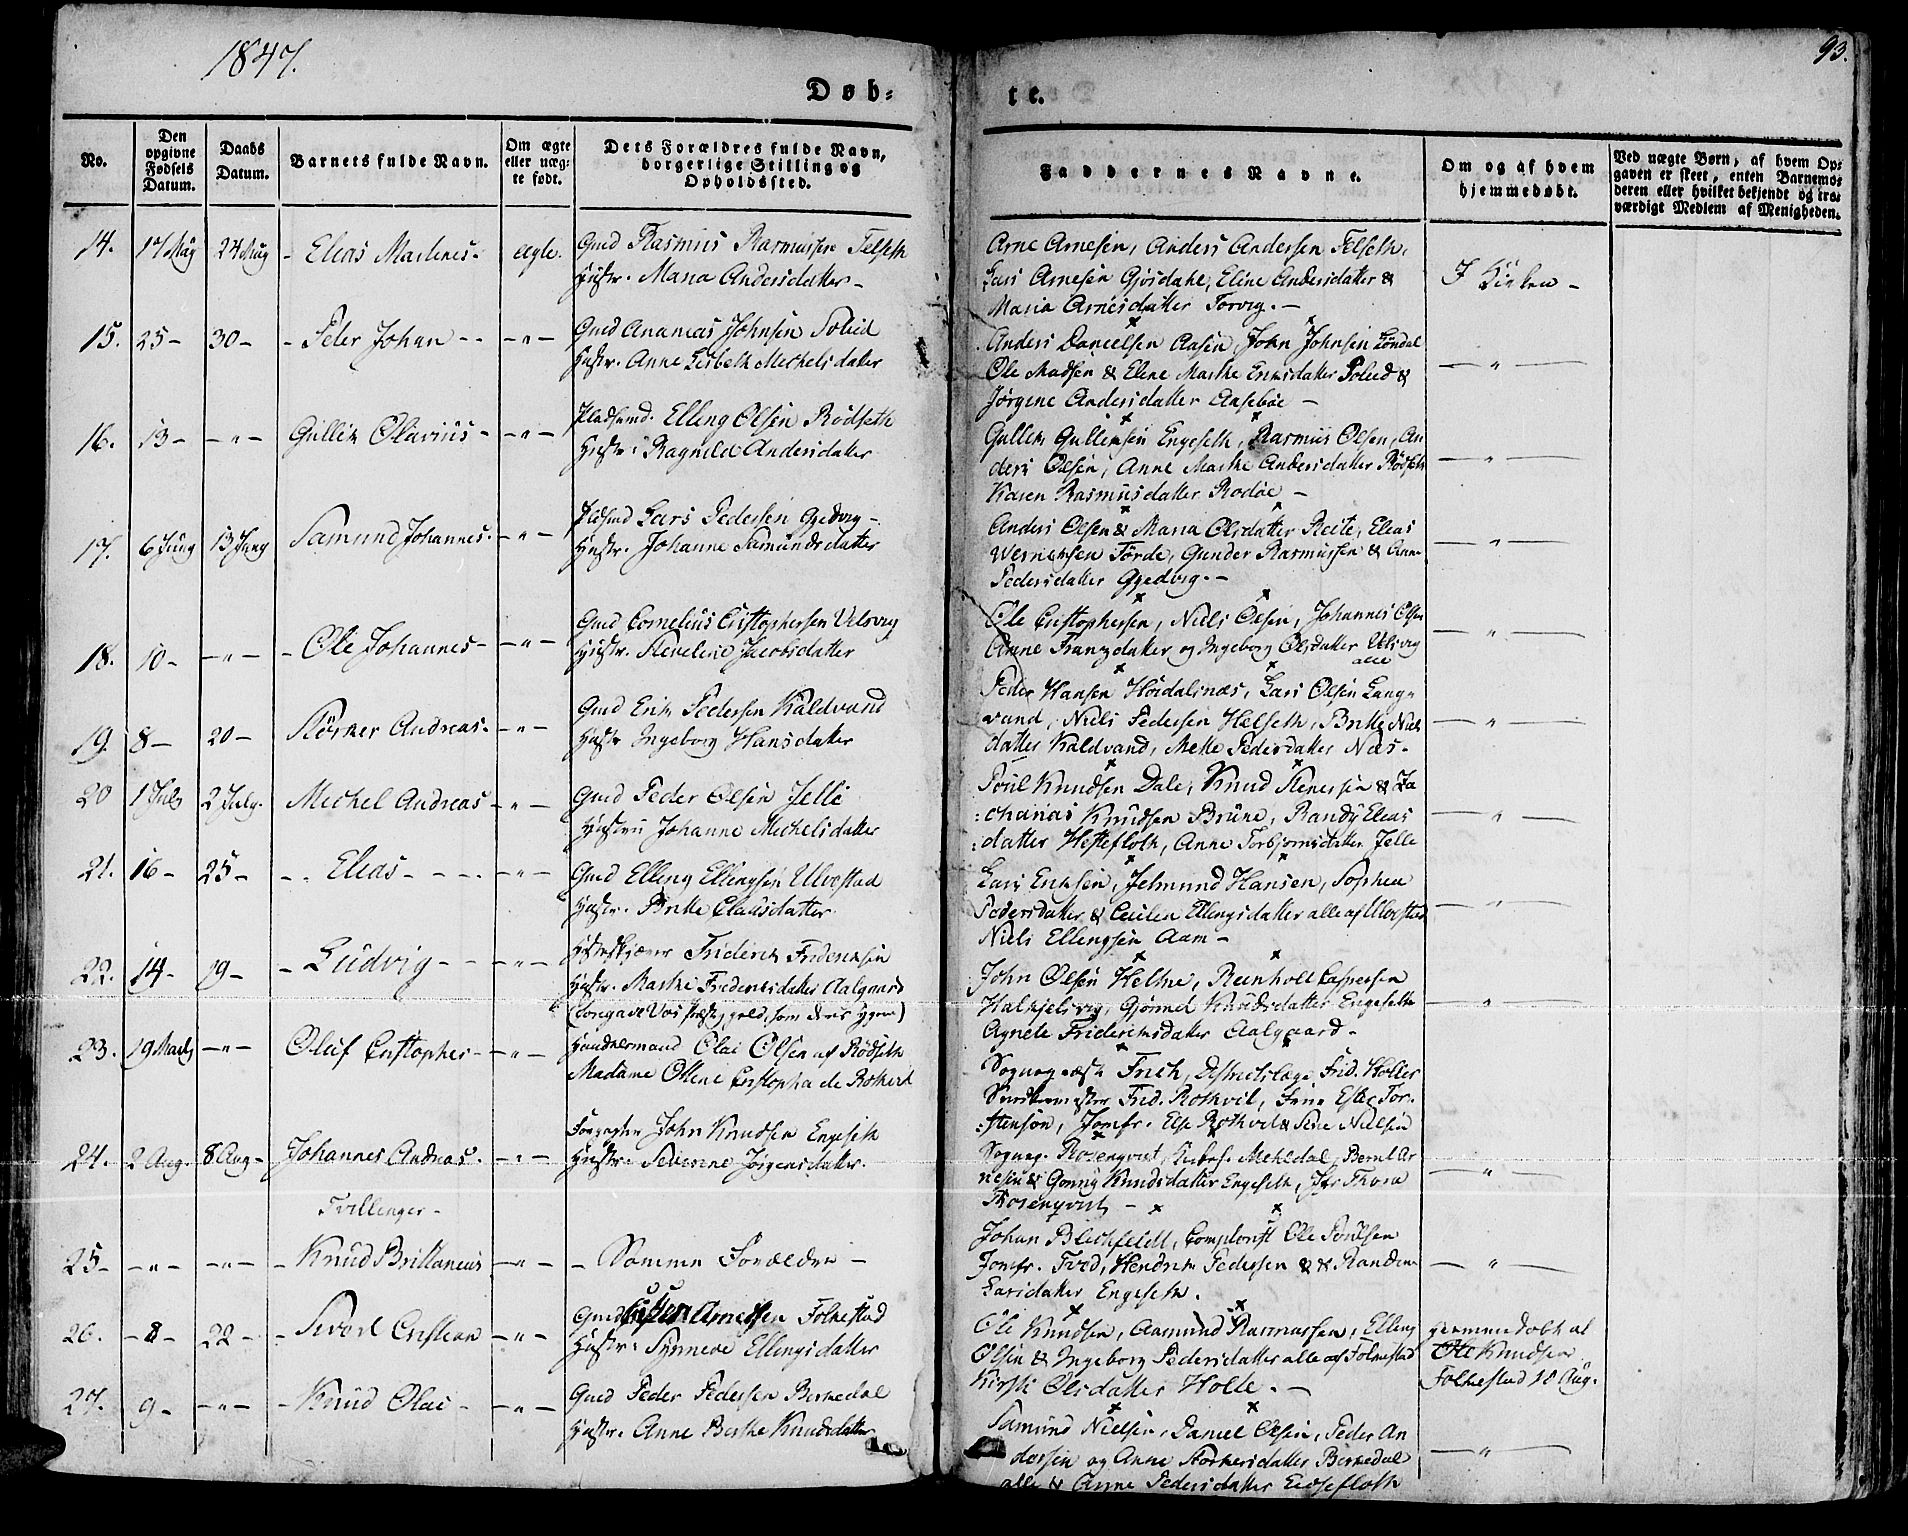 1847.
93.
Døb=
te.
No.
Den opgivne Fødsels Datum.
Daabs Datum.
Barnets fulde Navn.
Om ægte eller uæg= te født.
Dets Forældres fulde Navn, borgerlige Stilling og Opholdssted.
Faddernes Navne.
Om og af hvem hjemmedøbt.
Ved uægte Børn, af hvem Op= gaven er skeet, enten Barnemo= deren eller hvilket bekjendt og tro= værdigt Medlem af Menigheden.
14. 17 May 24 May - Elias Martinus - ægte.
Gmd Rasmus Rasmussen Telseth
Hustr. Maria Andersdatter -
Arne Arnesen, Anders Andersen Telseth,
Lars Arnesen Gjøsdahl, Eline Andersdatter &
Maria Arnesdatter Torvig. -
I Kirken -
15. 25 - 30 - - Peter Johan - - - " -
Gmd Ananias Johnsen Folied
Hustr. Anne Lisbeth Michelsdatter
Anders Danielsen Aasen, John Johnsen Løndal
Ole Madsen & Eline Marthe Eriksdatter &
Jørgine Andersdatter Aasebøe -
- " -
16. 13 - - " - Gullik Olavius - - " -
Pladsmd. Elling Olsen Rødseth
Hustr: Ragnild Andersdatter
Gullik Gulliksen Engeseth, Rasmus Olsen, An
ders Olsen, Anne Marthe Andersdatter Rødseth
Karen Rasmusdatter Rodøe -
- " -
17. 6 Juny 13 Juny Samund Johannes. - " -
Pladsmd Lars Pedersen Gjedvig -
Hustr. Johanne Samundsdatter
Anders Olsen & Maria Olsdatter Reite, Elias
Wernersen Førde, Gunder Rasmussen & Anne
Pedersdatter Gjedvig. -
- " -
18. 10 - - " - - Ole Johannes - - " -
Gmd Cornelius Cristophersen Velsvig
Hustr. Jacobsdatter
Ole Cristophersen, Niels Olsen, Johannes Olsen
Anne Franzdatter og Ingeborg Olsdatter Velsvig
alle
- " -
19. 8 - 20 - Størker Andreas. - " -
Gmd Erik Pedersen Kaldvand
Hustr Ingeborg Hansdatter
Peder Hansen Høidalsnæs, Lars Olsen Lang=
vand, Niels Pedersen Helseth, Britte Niels
datter Kaldvand, Mette Pedersdatter Næs -
- " -
20 1 July 2 July. Michel Andreas - " -
Gmd Peder Olsen Jelle
Hustru Johanne Michelsdatter
Poul Knudsen Dale, Knud Stenersen & Za
charias Knudsen Brune, Randy Elias
datter Hestefloth, Anne Torbjørnsdatter Jelle
- " -
21. 16 - 25 - - - Elias - - - - - " -
Gmd Elling Ellingsen Ulvestad
Hustr. Britte Clausdatter.
Lars Eriksen, Jelmund Hansen, Sophia
Pedersdatter & Cecilia Ellingsdatter alle af Ulvestad
Niels Ellingsen Aam -
- " -
22. 14 - 19 - - Ludvig - - - " -
Friderik Frideriksen
Hustr. Marthe Frideriksdatter Aalgaard
John Olsen Helkne, Reinholt Caspersen
Halkjelsvig, Gjønnel Knudsdatter Engeseth
Agnete Frideriksdatter Aalgaard -
- " -
23. 19 - " - Oluf Cristopher - - " -
Handelsmand Olai Olsen af Rødseth
Madame Oline Cristopha de Rotkvil
Sognepræst Frich, Districtslæge Frid. Holler
Frid. Rothvil, Else Tor=
stenson, Jomfr. Else Rothvil & Sine Nielsen
24. 2 Aug. 8 Aug - Johannes Andreas. - " -
John Knudsen Engeseth
Hustr. Severine Jørgensdatter.
Rosenqvist, Mehldal, Bernt Ar
nesen & Gonny Knudsdatter Engeseth, Jfr Thora
Rosenqvist -
- " -
Tvillinger -
25 - - " - - " - - Knud Brittanius - " -
- Samme Forældre -
Johan Blechfeldt, Ole Poulsen
Jomfr. Tvod, Hendrik Pedersen & Randine
Larsdatter Engeseth.
- " -
26. - 8 - 22 - - Sivert Cristian - " -
Gmd Arnessen Folkestad
Hustr: Synneve Ellingsdatter
Ole Knudsen, Aamund Rasmussen, Elling
Olsen & Ingeborg Pedersdatter alle af Folkestad
Kirsti Olsdatter Holle. -
Hjemmedøbt af
Ole Knudsen
Folkestad 10 Aug.
27. 9 - - " - - Knud Olai - - " -
Gmd Peder Pedersen Berkedal
Hustr. Anne Berthe Knudsdatter
Samund Nielsen, Daniel Olsen, Peder An
dersen og Anne Størkersdatter Berkedal
alle & Anne Pedersdatter Eidsefloth
- " -